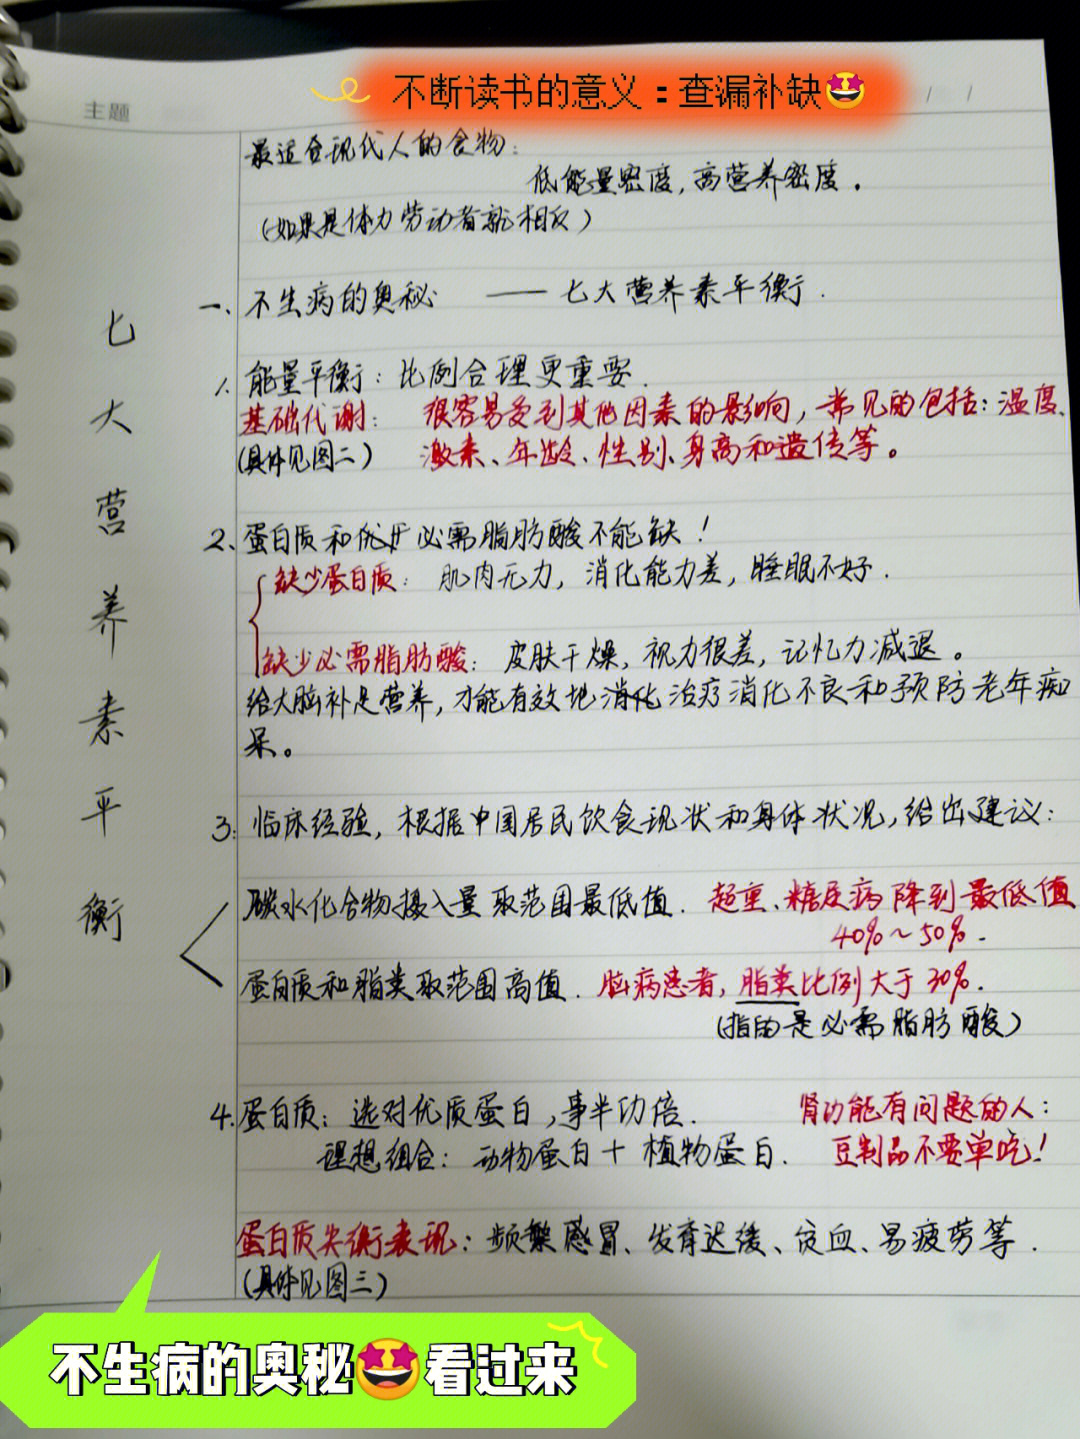 不断读书的意义：查漏补缺
主题
/ /
最适合现代人的食物：
低能量密度，高营养密度。
（如果是体力劳动者就相反）
七大营养素平衡
一、不生病的奥秘 —— 七大营养素平衡.
1. 能量平衡：比例合理更重要.
基础代谢： 很容易受到其他因素的影响，常见的包括：温度、
（具体见图二） 激素、年龄、性别、身高和遗传等。
2、蛋白质和优质必需脂肪酸不能缺！
缺少蛋白质： 肌肉无力，消化能力差，睡眠不好.
缺少必需脂肪酸：皮肤干燥，视力很差，记忆力减退。
给大脑补足营养，才能有效地消化治疗消化不良和预防老年痴
呆。
3: 临床经验，根据中国居民饮食现状和身体状况，给出建议：
碳水化合物摄入量取范围最低值. 超重、糖尿病降到最低值
40%～50%.
蛋白质和脂类取范围高值. 脑病患者，脂类比例大于30%.
（指的是必需脂肪酸）
4.蛋白质：选对优质蛋白，事半功倍. 肾功能有问题的人：
理想组合：动物蛋白＋植物蛋白. 豆制品不要单吃！
蛋白质失衡表现：频繁感冒、发育迟缓、贫血、易疲劳等.
（具体见图三）
不生病的奥秘看过来